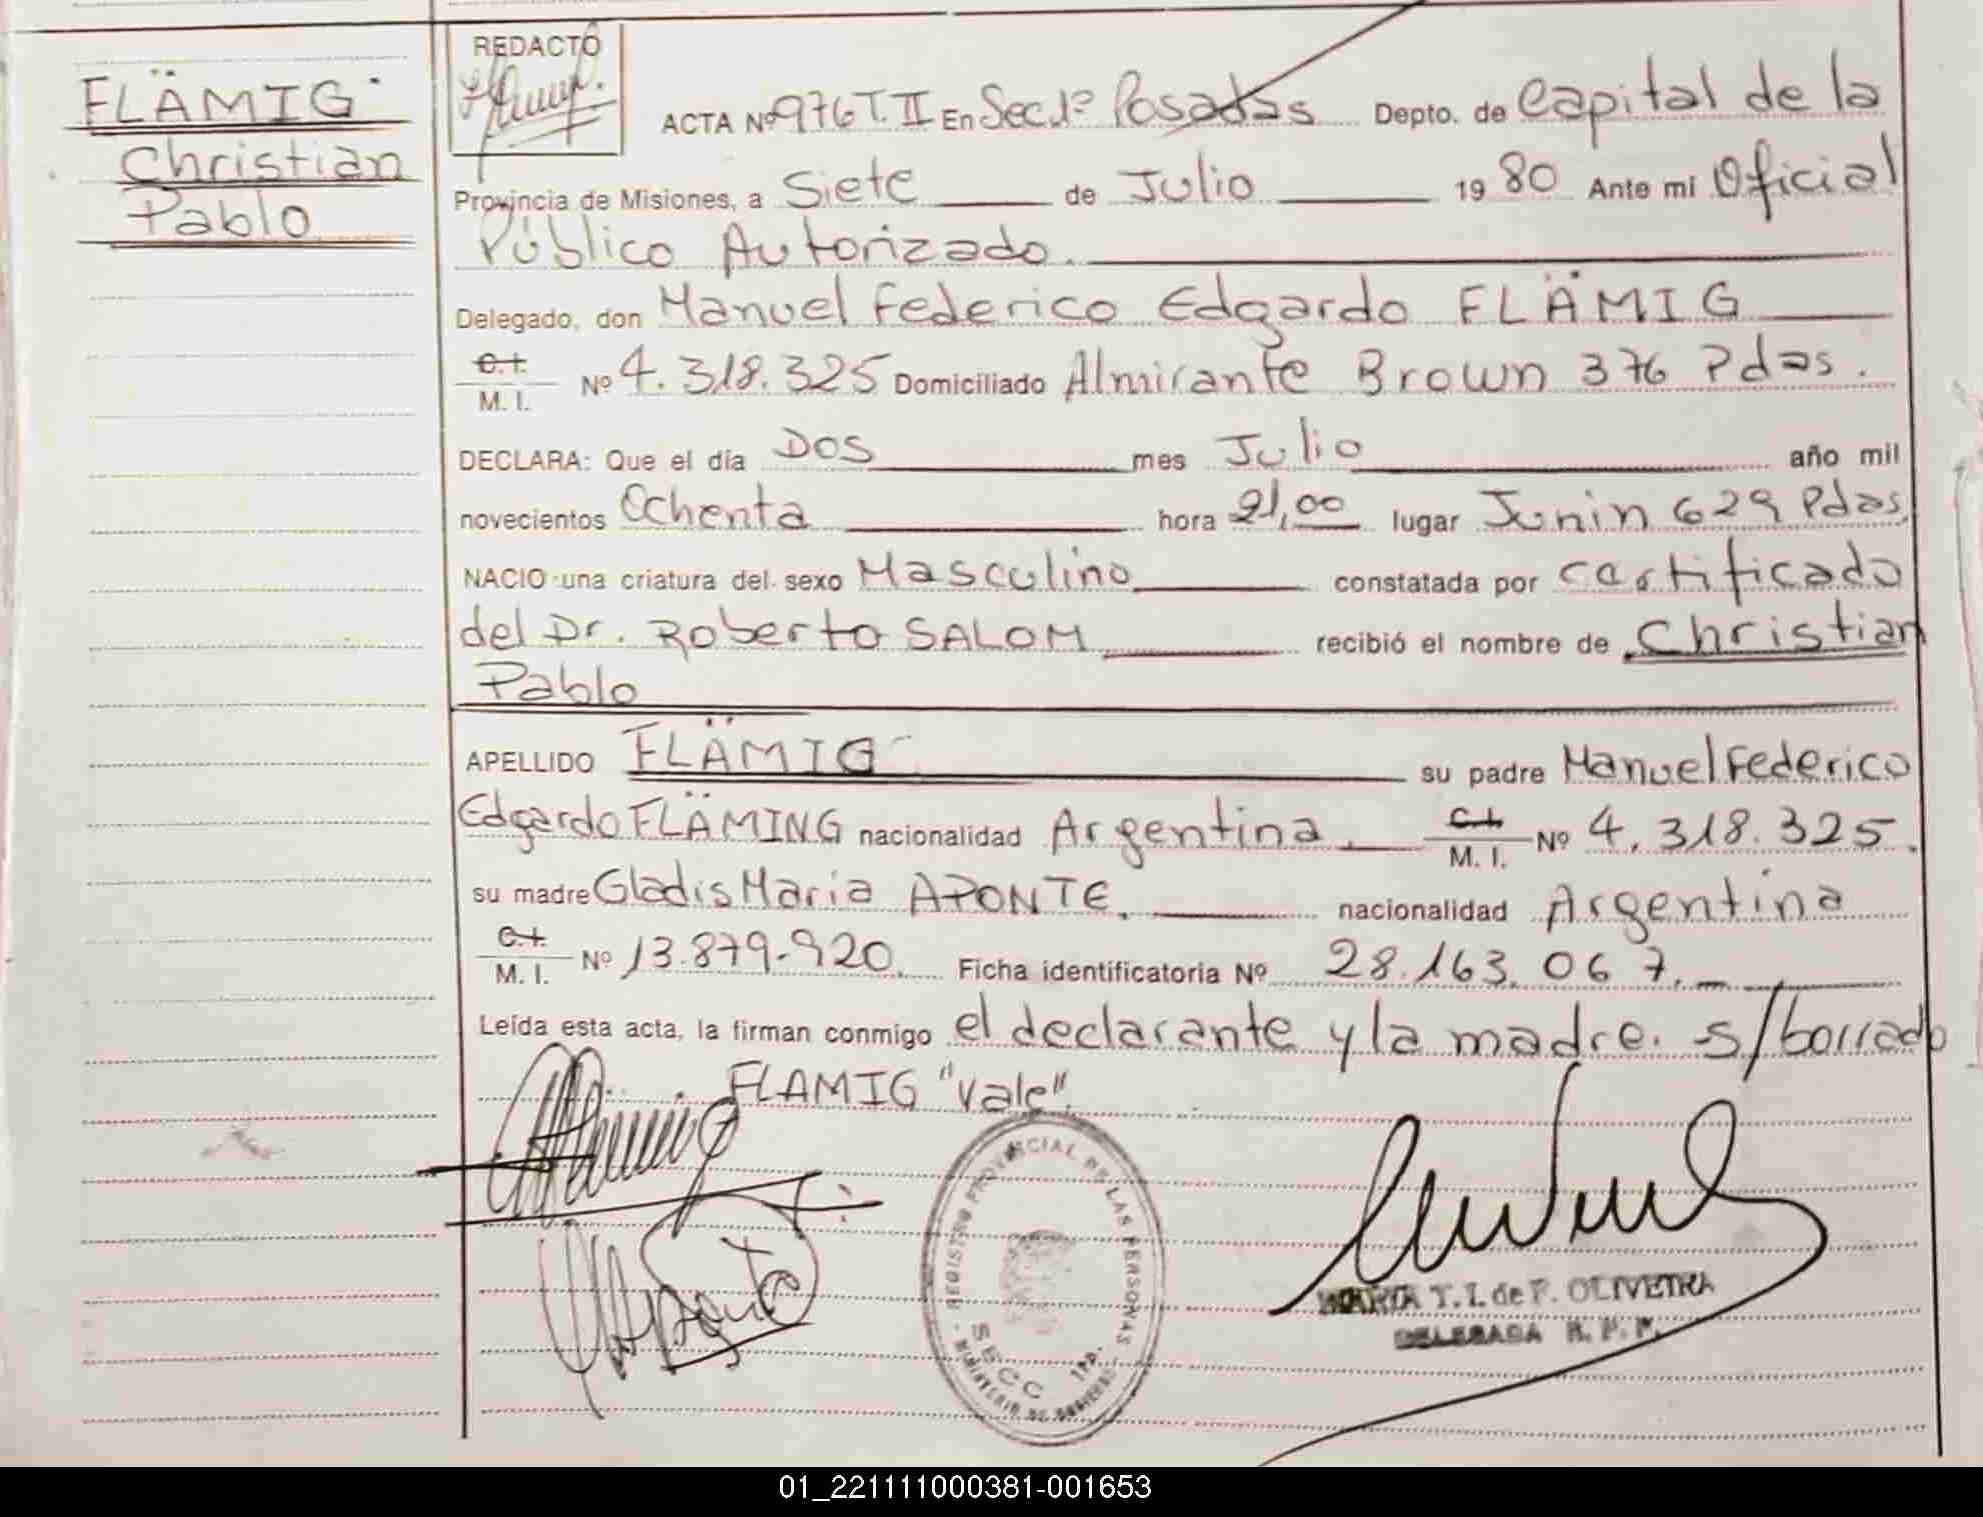 FLÄMIG
Christian
Pablo
REDACTO
ACTA Nº 976 T. II En Sec. 1ª Posadas Depto. de Capital de la
Provincia de Misiones, a Siete de Julio 19 80 Ante mi Oficial
Público Autorizado.
Delegado, don Manuel Federico Edgardo FLÄMIG
C.I.
M. I. Nº 4.318.325 Domiciliado Almirante Brown 376 Pdas.
DECLARA: Que el día DOS mes Julio año mil
novecientos Ochenta hora 21,00 lugar Junin 629 Pdas
NACIO una criatura del sexo Masculino constatada por certificado
del Dr. Roberto SALOM recibió el nombre de Christian
Pablo
APELLIDO FLÄMIG su padre Manuel Federico
Edgardo FLÄMING nacionalidad Argentina C.I.
M. I. Nº 4.318.325.
su madre Gladis Maria APONTE. nacionalidad Argentina
C.I.
M. I. Nº 13.879.920. Ficha identificatoria Nº 28.163.067.
Leída esta acta, la firman conmigo el declarante y la madre. s/borrado
FLAMIG "Vale".
REGISTRO PROVINCIAL DE LAS PERSONAS
SECC 1ra.
MINISTERIO DE GOBIERNO
MARIA T. I. de P. OLIVEIRA
DELEGADA R. P. P.
01_221111000381-001653